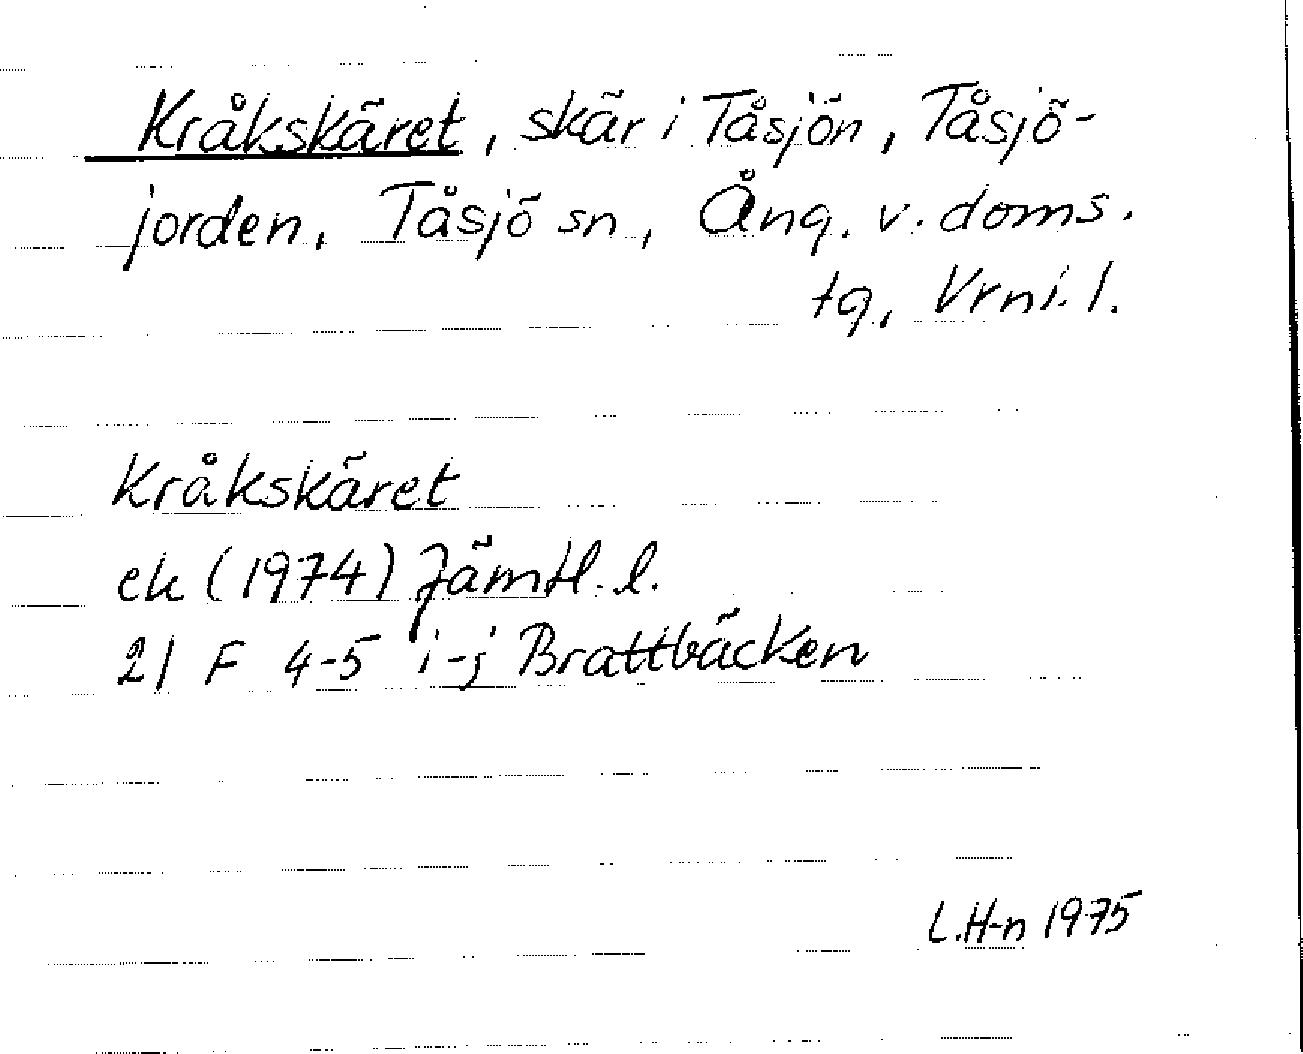 Kråkskäret, skär i Tåsjön, Tåsjö-
jorden, Tåsjö sn, Ång. v. doms.
tg, Vrnl. l.
Kråkskäret
ek (1974) Jämtl. l.
21 F 4-5 i-j Brattbäcken
L.H-n 1975